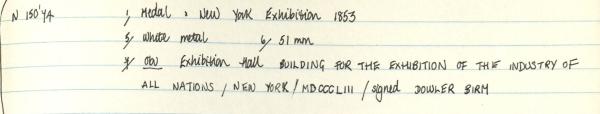 N 150'74 1/ Medal : New York Exhibition 1853
5/ White metal 6/ 51 mm
9/ Obv Exhibition Hall BUILDING FOR THE EXHIBITION OF THE INDUSTRY OF
ALL NATIONS / NEW YORK / MDCCCLIII / signed DOWLER BIRM